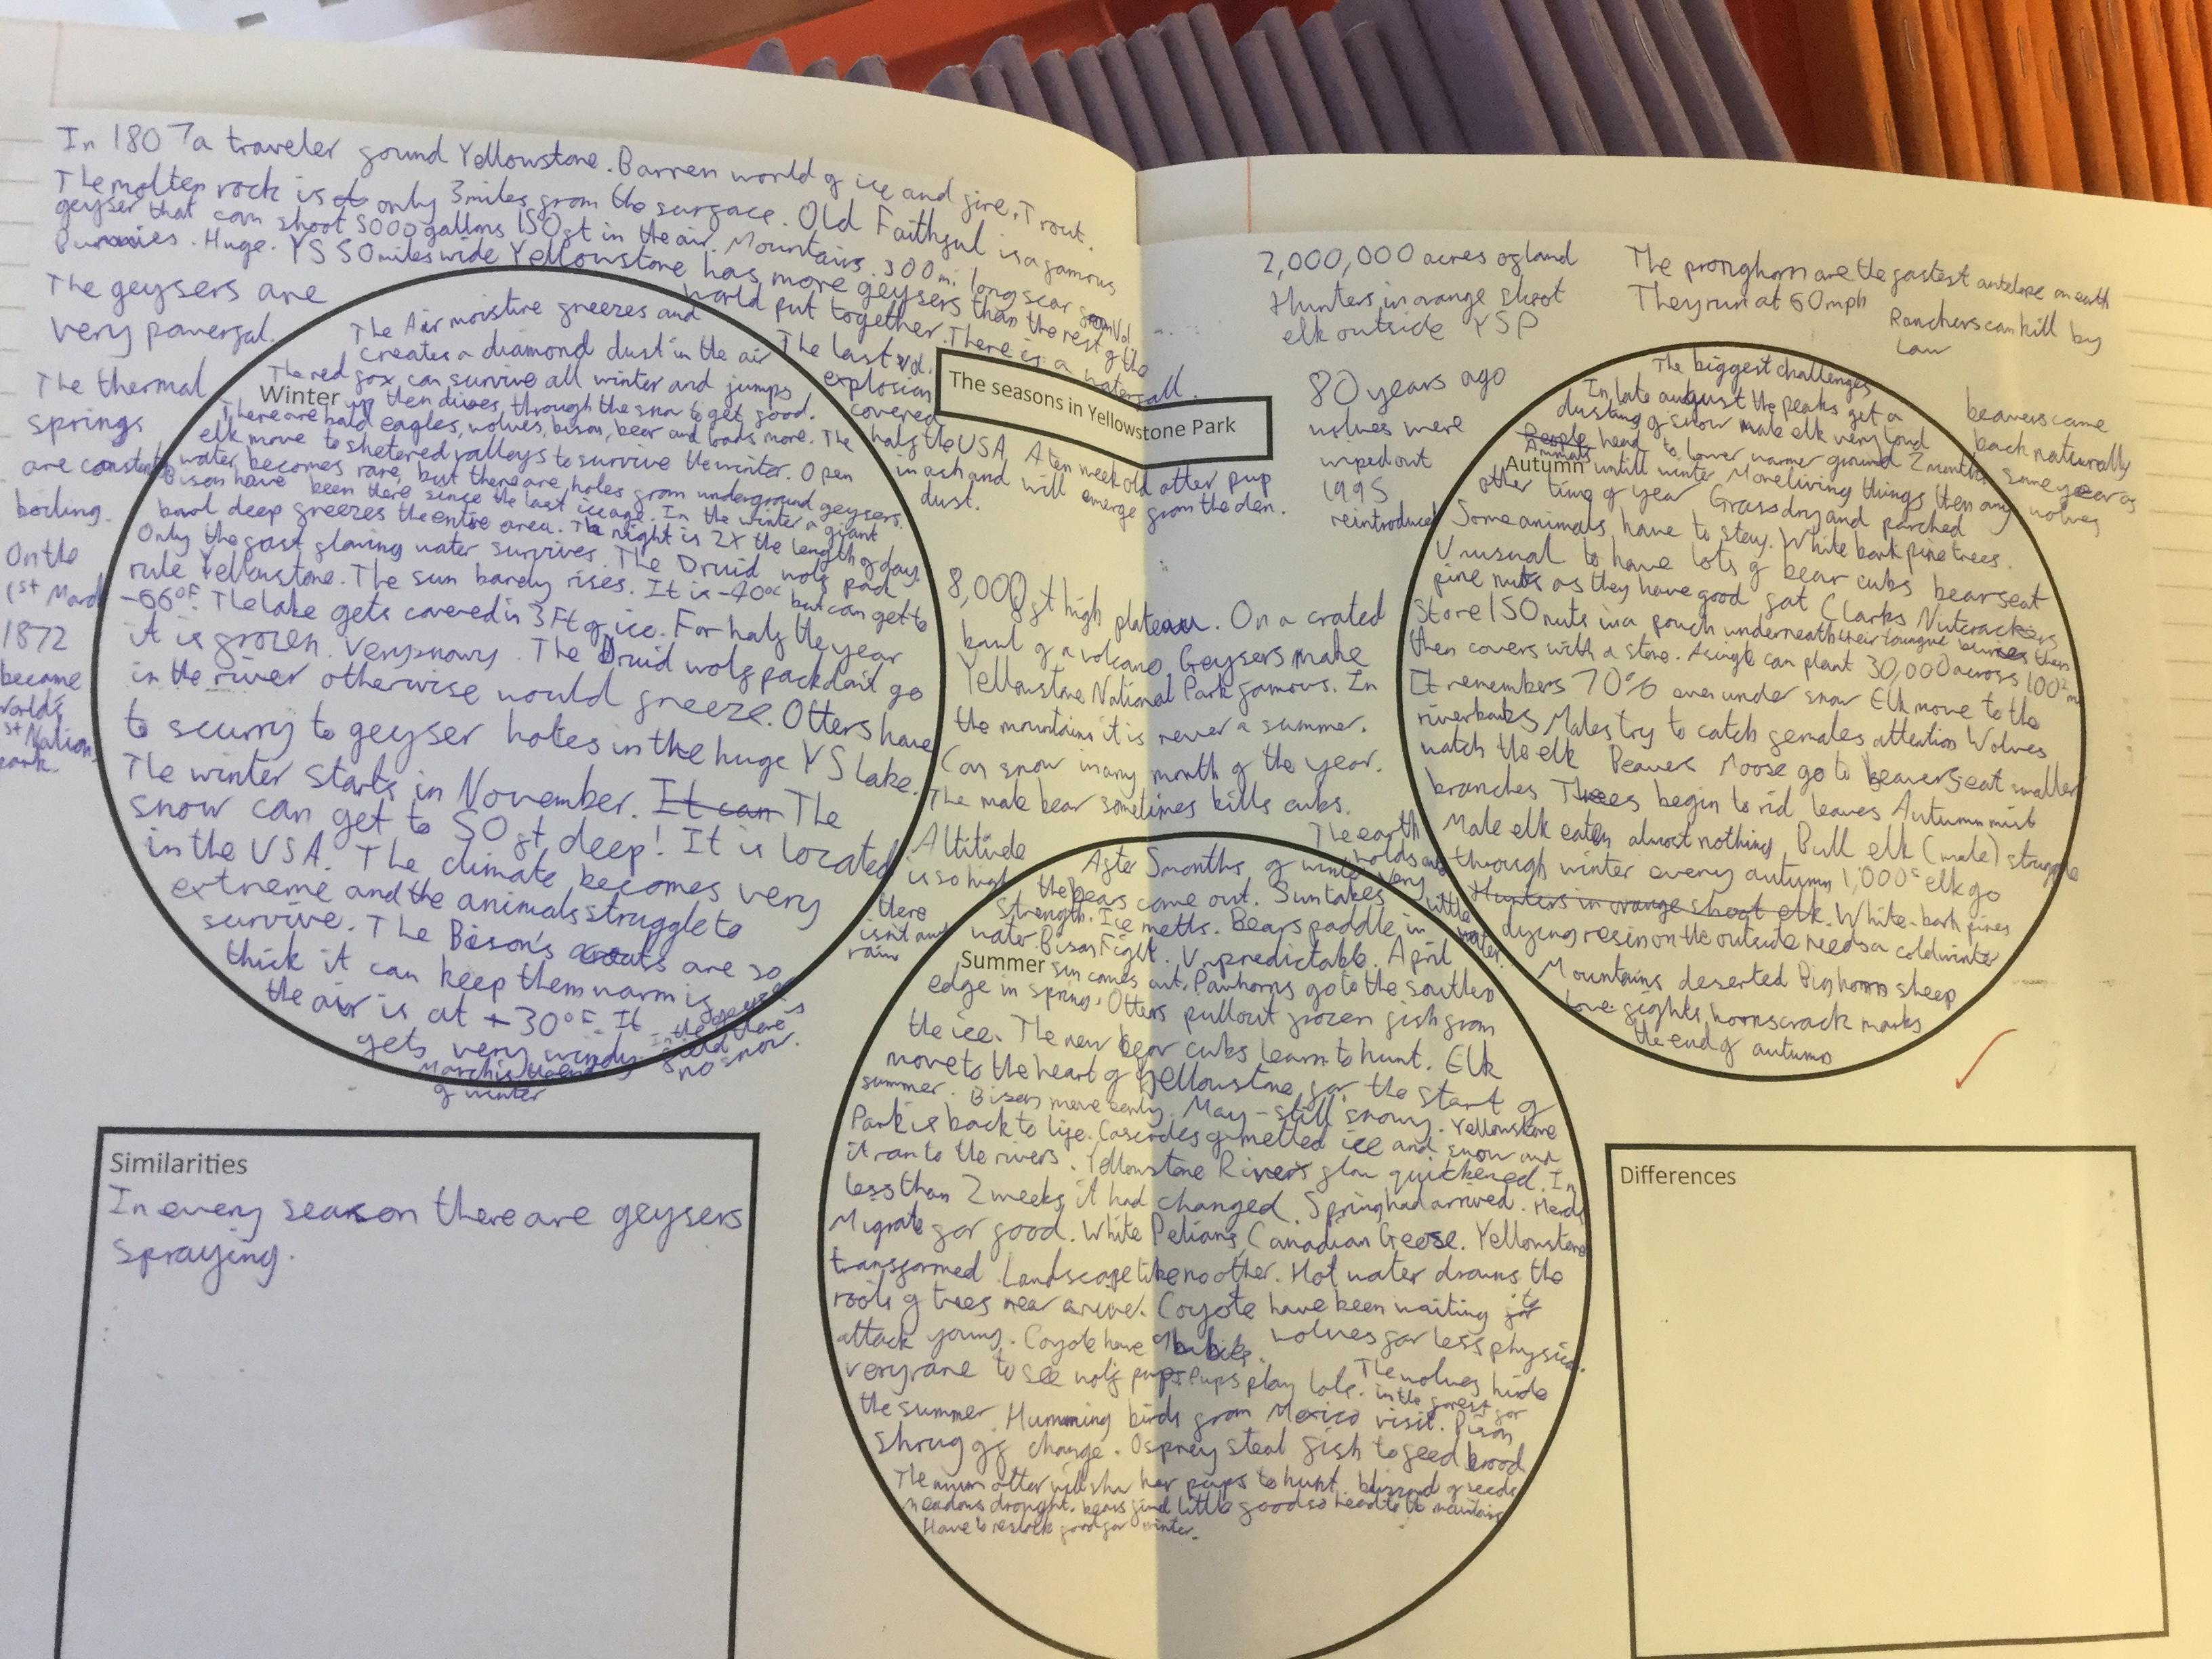 In 1807 a traveler found Yellowstone. Barren world of ice and fire. Trout.
The molten rock is only 3 miles from the surface. Old Faithful is a famous
geyser that can shoot 5000 gallons 150ft in the air. Mountains. 300m. long scar from Vol
Bunnies. Huge. YS 50 miles wide Yellowstone has more geysers than the rest of the
world put together. There is a waterfall.
The geysers are
very powerful.
The thermal
springs
are constantly
boiling.
On the
1st March
1872
became
worlds
1st Nation
park.
Winter
The Air moistive freezes and
creates a diamond dust in the air
The red fox can survive all winter and jumps
up then dives, through the snow to get food.
There are bald eagles, wolves, bison, bear and loads more. The
elk move to sheltered valleys to survive the winter. Open
water becomes rare, but there are holes from underground geysers.
Bison have been there since the last ice age. In the winter a giant
bowl deep freezes the entire area. The night is 2X the length of day.
Only the fast flowing water survives. The Druid wolf pack
rule Yellowstone. The sun barely rises. It is -40°c but can get to
-66°F. The lake gets covered in 3Ft of ice. For half the year
it is frozen. Very snowy. The Druid wolf pack don't go
in the river otherwise would freeze. Otters have
to scurry to geyser holes in the huge YS lake.
The winter starts in November. It can The
snow can get to 50ft deep! It is located
in the USA. The climate becomes very
extreme and the animals struggle to
survive. The Bison's coats are so
thick it can keep them warm if
the air is at -30°F. It
gets very windy.
In the geyser
field there's
no snow.
March is the end
of winter
The last vol.
explosion
covered
half the USA
in ash and
dust.
The seasons in Yellowstone Park
A ten week old otter pup
will emerge from the den.
8,000ft high plateau. On a crated
bowl of a volcano. Geysers make
Yellowstone National Park famous. In
the mountains it is never a summer.
Can snow in any month of the year.
The male bear sometimes kills cubs.
Altitude
is so high
there
isn't any
rain
The earth
holds
very
little
water.
2,000,000 acres of land
Hunters in orange shoot
elk outside YSP
80 years ago
wolves were
wiped out
1995
reintroduced
The pronghorn are the fastest antelope on earth
They run at 60mph
Ranchers can kill by
Law
beavers came
back naturally
same year as
wolves
Autumn
The biggest challenges
In late august the peaks get a
dusting of snow male elk very loud
People Animals head to lower warmer ground 2 months
untill winter More living things then any
other time of year Grass dry and parched
Some animals have to stay. White bark pine trees.
Unusual to have lots of bear cubs bears eat
pine nuts as they have good fat Clarks Nutcrackers
store 150 nuts in a pouch underneath their toungue buries them
then covers with a stone. A single can plant 30,000 across 100²m
It remembers 70% even under snow Elk move to the
riverbanks Males try to catch females attention Wolves
watch the elk Beavers Moose go to beavers eat smaller
branches Trees begin to rid leaves Autumn mist
Male elk eaten almost nothing Bull elk (male) struggle
through winter every autumn 1,000s elk go
Hunters in orange shoot elk. White-bark pines
dying resin on the outside needs a cold winter
Mountains deserted Bighorn sheep
love fights horns crack marks
the end of autumn
Summer
After 5 months of winter
the bears come out. Sun takes
strength. Ice melts. Bears paddle in
water. Bison Fight. Unpredictable. April
sun comes out. Pronhorns go to the southen
edge in spring. Otters pull out frozen fish from
the ice. The new bear cubs learn to hunt. Elk
move to the heart of Yellowstone for the start of
summer. Bison move early. May - still snowy. Yellowstone
Park is back to life. Cascades of melted ice and snow and
it ran to the rivers. Yellowstone Rivers flow quickened. In
less than 2 weeks it had changed. Spring had arrived. Herds
Migrate for food. White Pelians, Canadian Geese. Yellowstone
transformed Landscape like no other. Hot water drowns the
roots of trees near a river. Coyote have been waiting to
attack young. Coyote have 9 babies. Wolves far less physical.
very rare to see wolf pups Pups play lots. The wolves hide
in the forest for
the summer. Humming birds from Mexico visit. Bison
shrug off change. Osprey steal fish to feed brood
The mum otter will show her pups to hunt. blizzard of seeds
meadows drought. bears find little food so head to the mountains
Have to restock food for winter.
Similarities
In every season there are geysers
spraying.
Differences